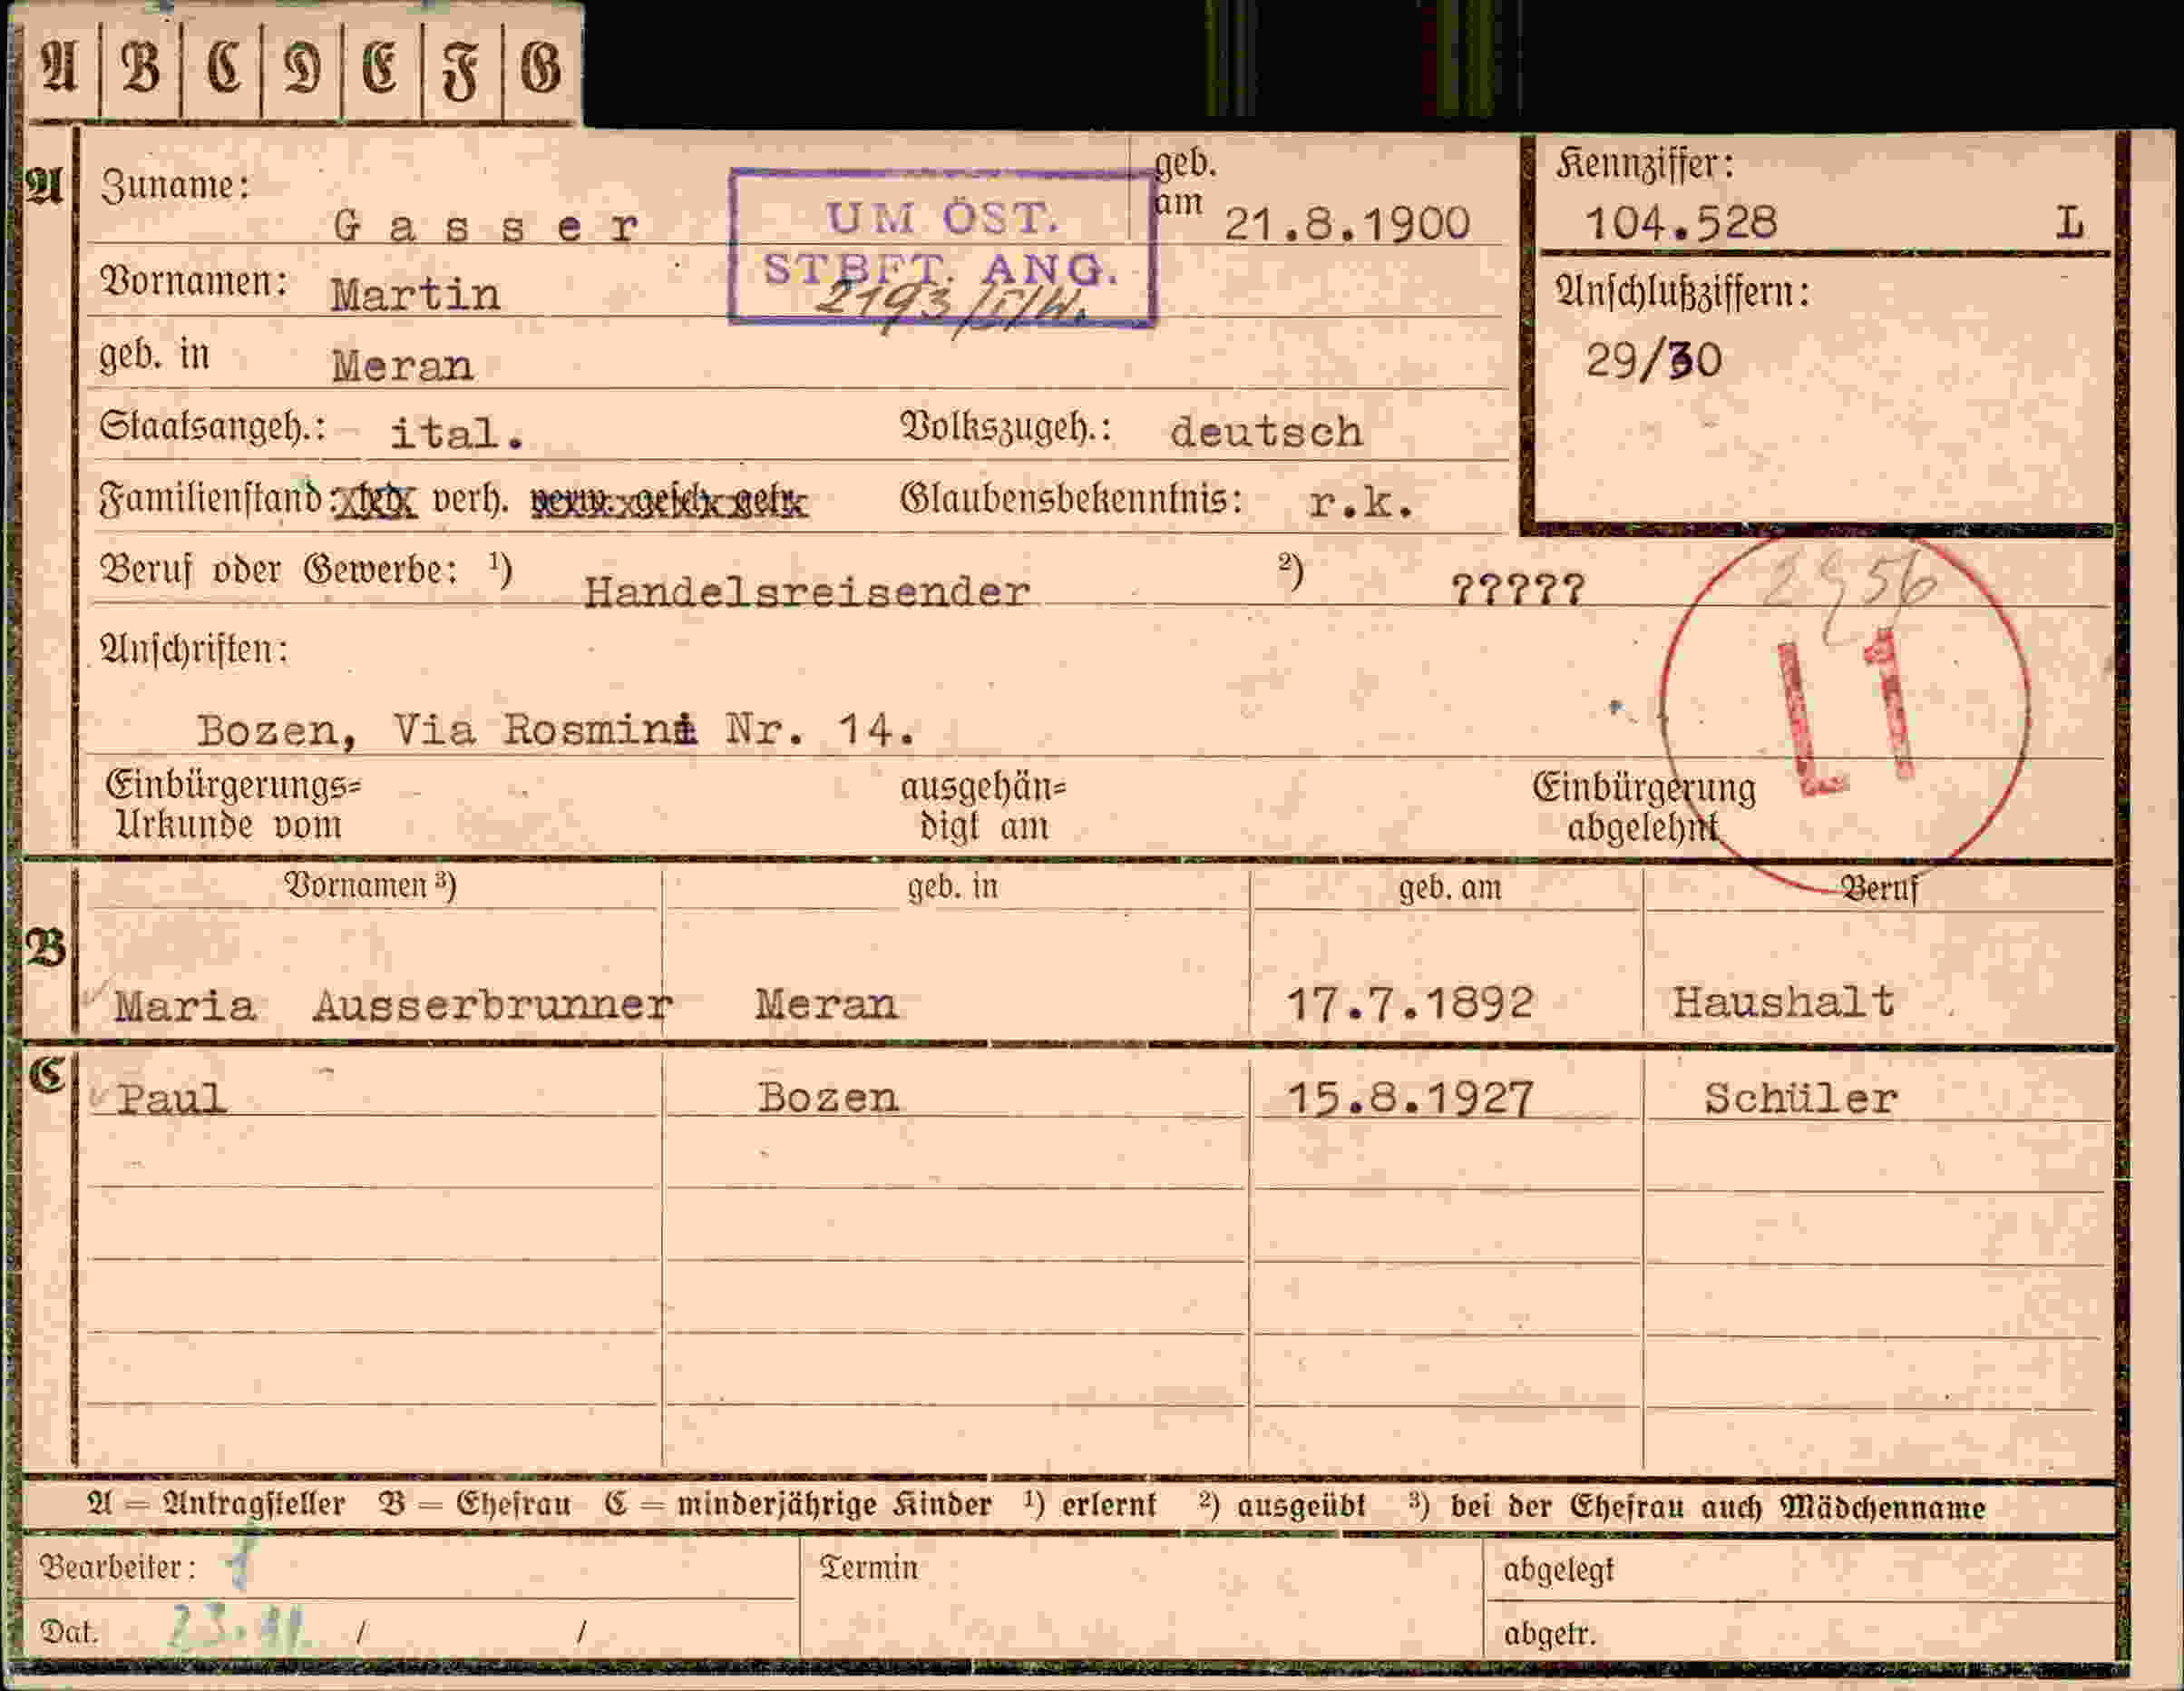 A B C D E F G
A Zuname: Gasser
UM ÖST.
STBFT. ANG.
2193/I/W.
geb. am 21.8.1900
Kennziffer:
104.528 L
Vornamen: Martin
Anschlußziffern:
29/30
geb. in Meran
Staatsangeh.: ital. Volkszugeh.: deutsch
Familienstand: led. verh. verw. gesch. getr. Glaubensbekenntnis: r.k.
Beruf oder Gewerbe: ¹) Handelsreisender ²) ?????
L1
Anschriften:
Bozen, Via Rosmini Nr. 14.
Einbürgerungs=
Urkunde vom
ausgehän=
digt am
Einbürgerung
abgelehnt
Vornamen ³) geb. in geb. am Beruf
B Maria Ausserbrunner Meran 17.7.1892 Haushalt
C Paul Bozen 15.8.1927 Schüler
A = Antragsteller B = Ehefrau C = minderjährige Kinder ¹) erlernt ²) ausgeübt ³) bei der Ehefrau auch Mädchenname
Bearbeiter: Termin abgelegt
Dat. / / abgetr.